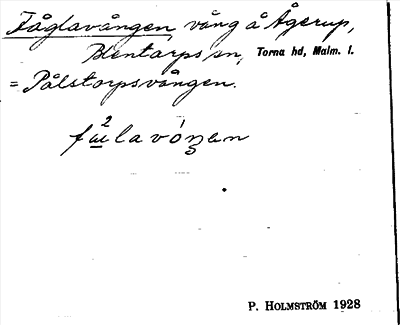 Fåglavången, vång å Ågerup,
Blentarps sn, Torna hd, Malm. l.
= Pålstorpsvången.
P. HOLMSTRÖM 1928